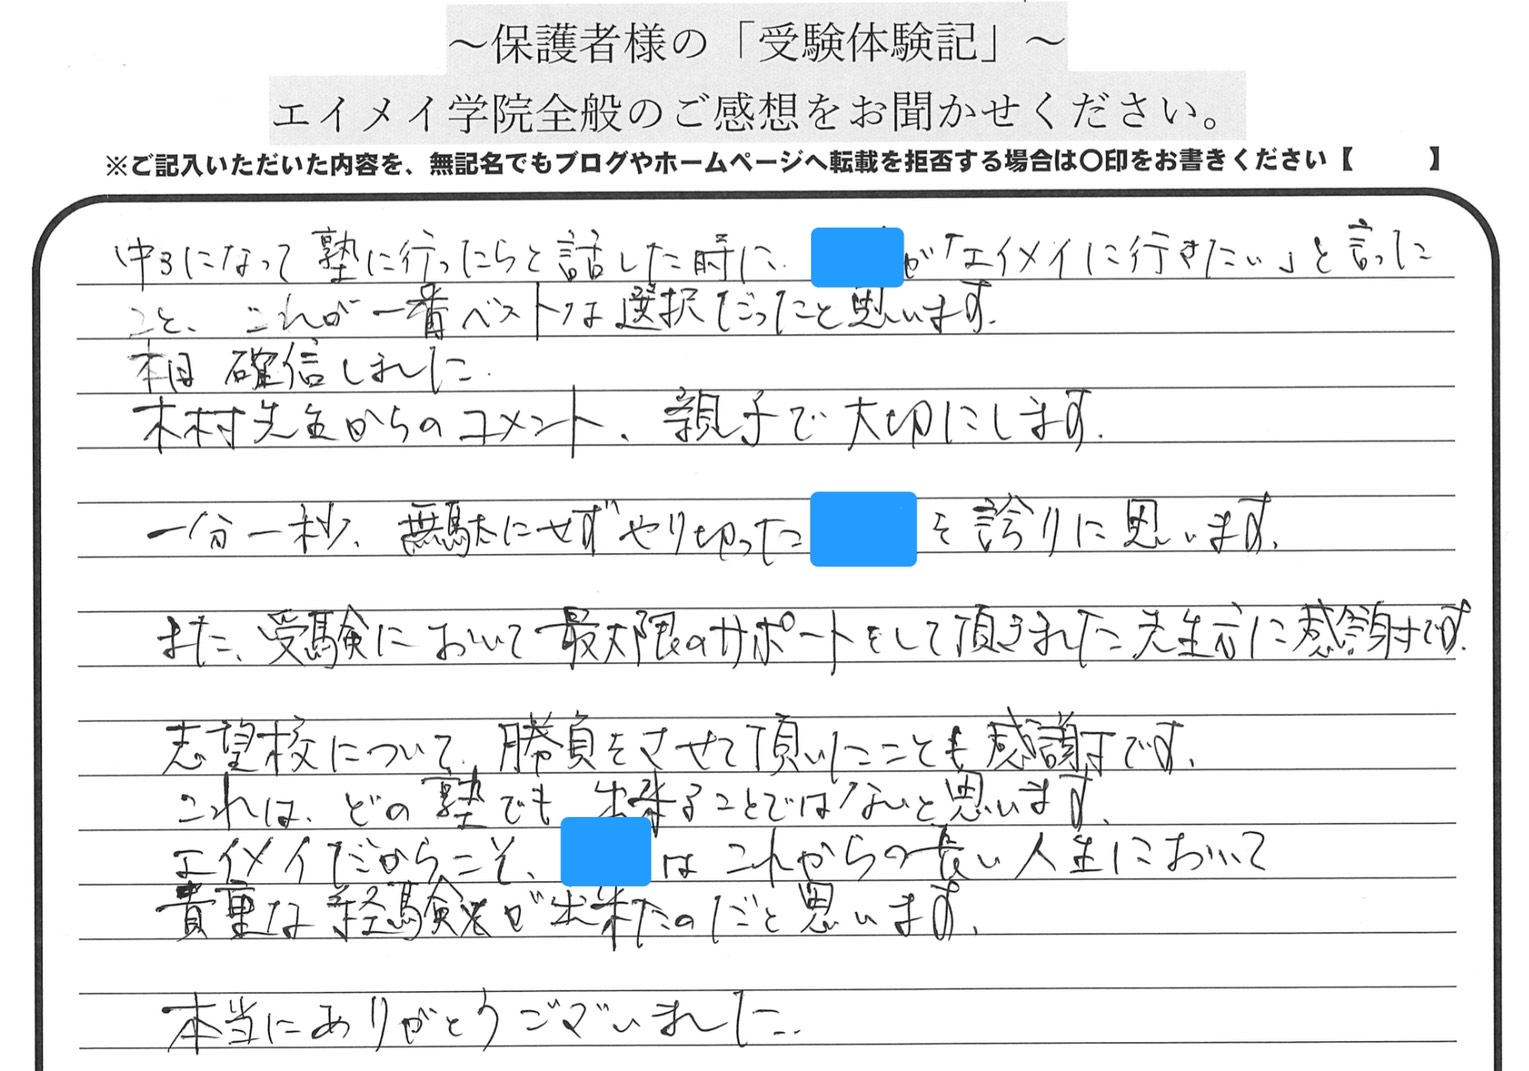 ～保護者様の「受験体験記」～
エイメイ学院全般のご感想をお聞かせください。
※ご記入いただいた内容を、無記名でもブログやホームページへ転載を拒否する場合は〇印をお書きください【　　】
中3になって塾に行ったらと話した時に、が「エイメイに行きたい」と言った
こと、これが一番ベストな選択だったと思います。
本日確信しました。
木村先生からのコメント、親子で大切にします。
一分一秒、無駄にせずやり切ったを誇りに思います。
また、受験において最大限のサポートをして頂きました先生方に感謝です。
志望校について、勝負をさせて頂いたことも感謝です。
これは、どの塾でも出来ることではないと思います。
エイメイだからこそ、はこれからの長い人生において
貴重な経験が出来たのだと思います。
本当にありがとうございました。